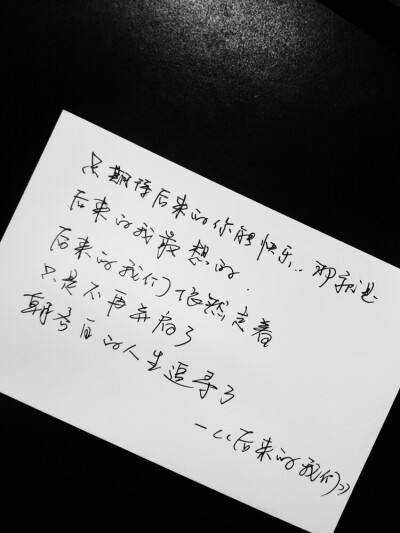 只期待后来的你能快乐..那就是
后来的我最想的.
后来的我们依然走着
只是不再并肩了
朝各自的人生追寻了
—《后来的我们》